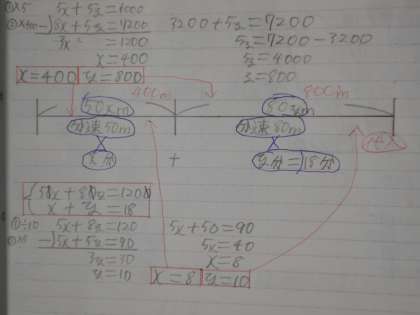 ①×5 5x+5y=6000
②×100 -)8x+5y=7200
3x =1200
x=400
x=400 y=800
3200+5y=7200
5y=7200-3200
5y=4000
y=800
400m 800m
50xm 80ym
分速50m 分速80m
x分 + y分=18分
{50x+80y=1200
x+y=18
①÷10 5x+8y=120
②×5 -)5x+5y=90
3y=30
y=10
5x+50=90
5x=40
x=8
x=8 y=10